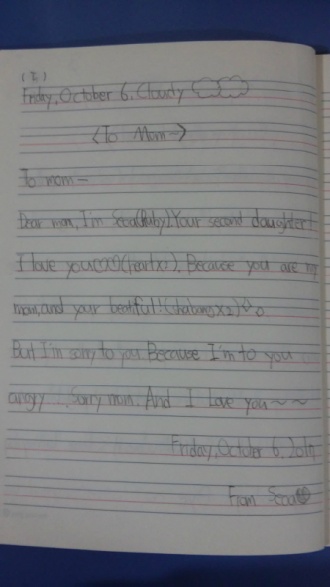 (금)
Friday, October 6. Cloudy
<To Mom~>
To mom~
Dear mom, I'm Seoa(Ruby). Your second daughter!
I love you♡♡(heart×). Because you are my
mom, and your beatiful! (×2)
But I'm sorry to you. Because I'm to you
angry.. Sorry mom. And I Love you~~
Friday, October 6,
From Seoa